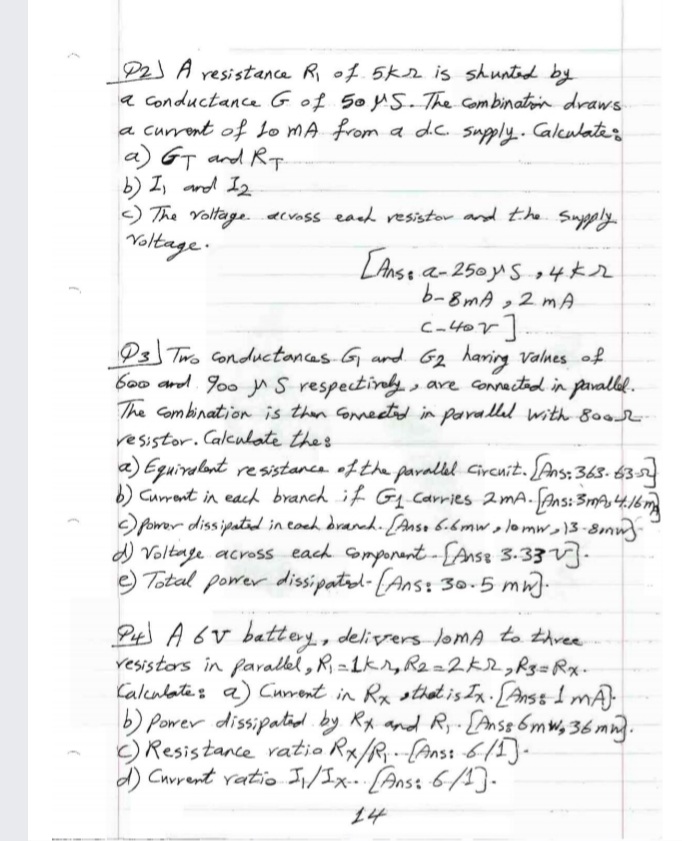 Q2) A resistance R₁ of 5kΩ is shunted by
a conductance G of 50 μS. The combination draws
a current of 10 mA from a d.c. supply. Calculate:
a) GT and RT
b) I₁ and I₂
c) The voltage across each resistor and the supply
voltage.
[Ans: a-250μS, 4kΩ
b-8mA, 2mA
c-40V].
Q3) Two conductances G₁ and G₂ having values of
600 and 900 μS respectively, are connected in parallel.
The combination is then connected in parallel with 800Ω
resistor. Calculate the:
a) Equivalent resistance of the parallel circuit. [Ans: 363.63Ω]
b) Current in each branch if G₁ carries 2mA. [Ans: 3mA, 4.16mA]
c) power dissipated in each branch. [Ans: 6.6mw, 10mw, 13.8mw].
d) Voltage across each component. [Ans: 3.33V].
e) Total power dissipated. [Ans: 30.5 mW].
Q4) A 6V battery, delivers 10mA to three
resistors in parallel, R₁=1kΩ, R₂=2kΩ, R₃=Rx.
Calculate: a) Current in Rx, that is Ix. [Ans: 1mA].
b) power dissipated by Rx and R₁. [Ans: 6mW, 36mW].
c) Resistance ratio Rx/R₁. [Ans: 6/1].
d) Current ratio I₁/Ix. [Ans: 6/1].
14